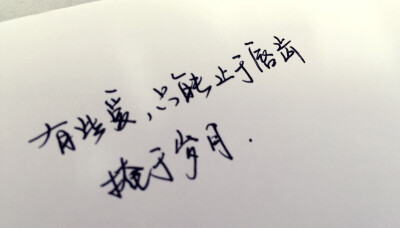 有些爱、只能止于唇齿
掩于岁月.